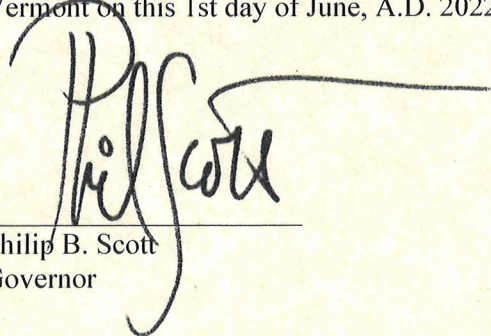 Vermont on this 1st day of June, A.D. 2022
Phil Scott
hilip B. Scott
Governor